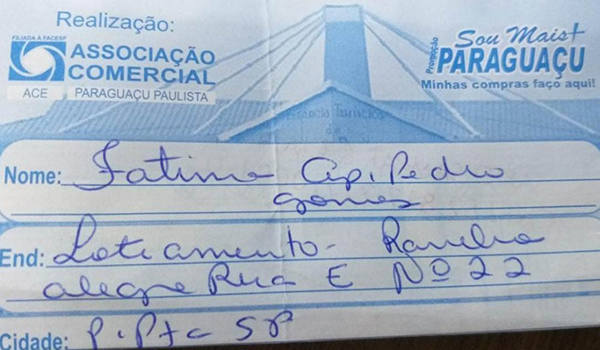 Realização:
FILIADA À FACESP
ASSOCIAÇÃO
COMERCIAL
ACE PARAGUAÇU PAULISTA
Promoção
Sou Mais+
PARAGUAÇU
Minhas compras faço aqui!
Estância Turística
Nome: Fatima Ap. Pedro
Gomes
End: Loteamento - Rancho
alegre Rua E Nº 22
Cidade: P. Pta SP